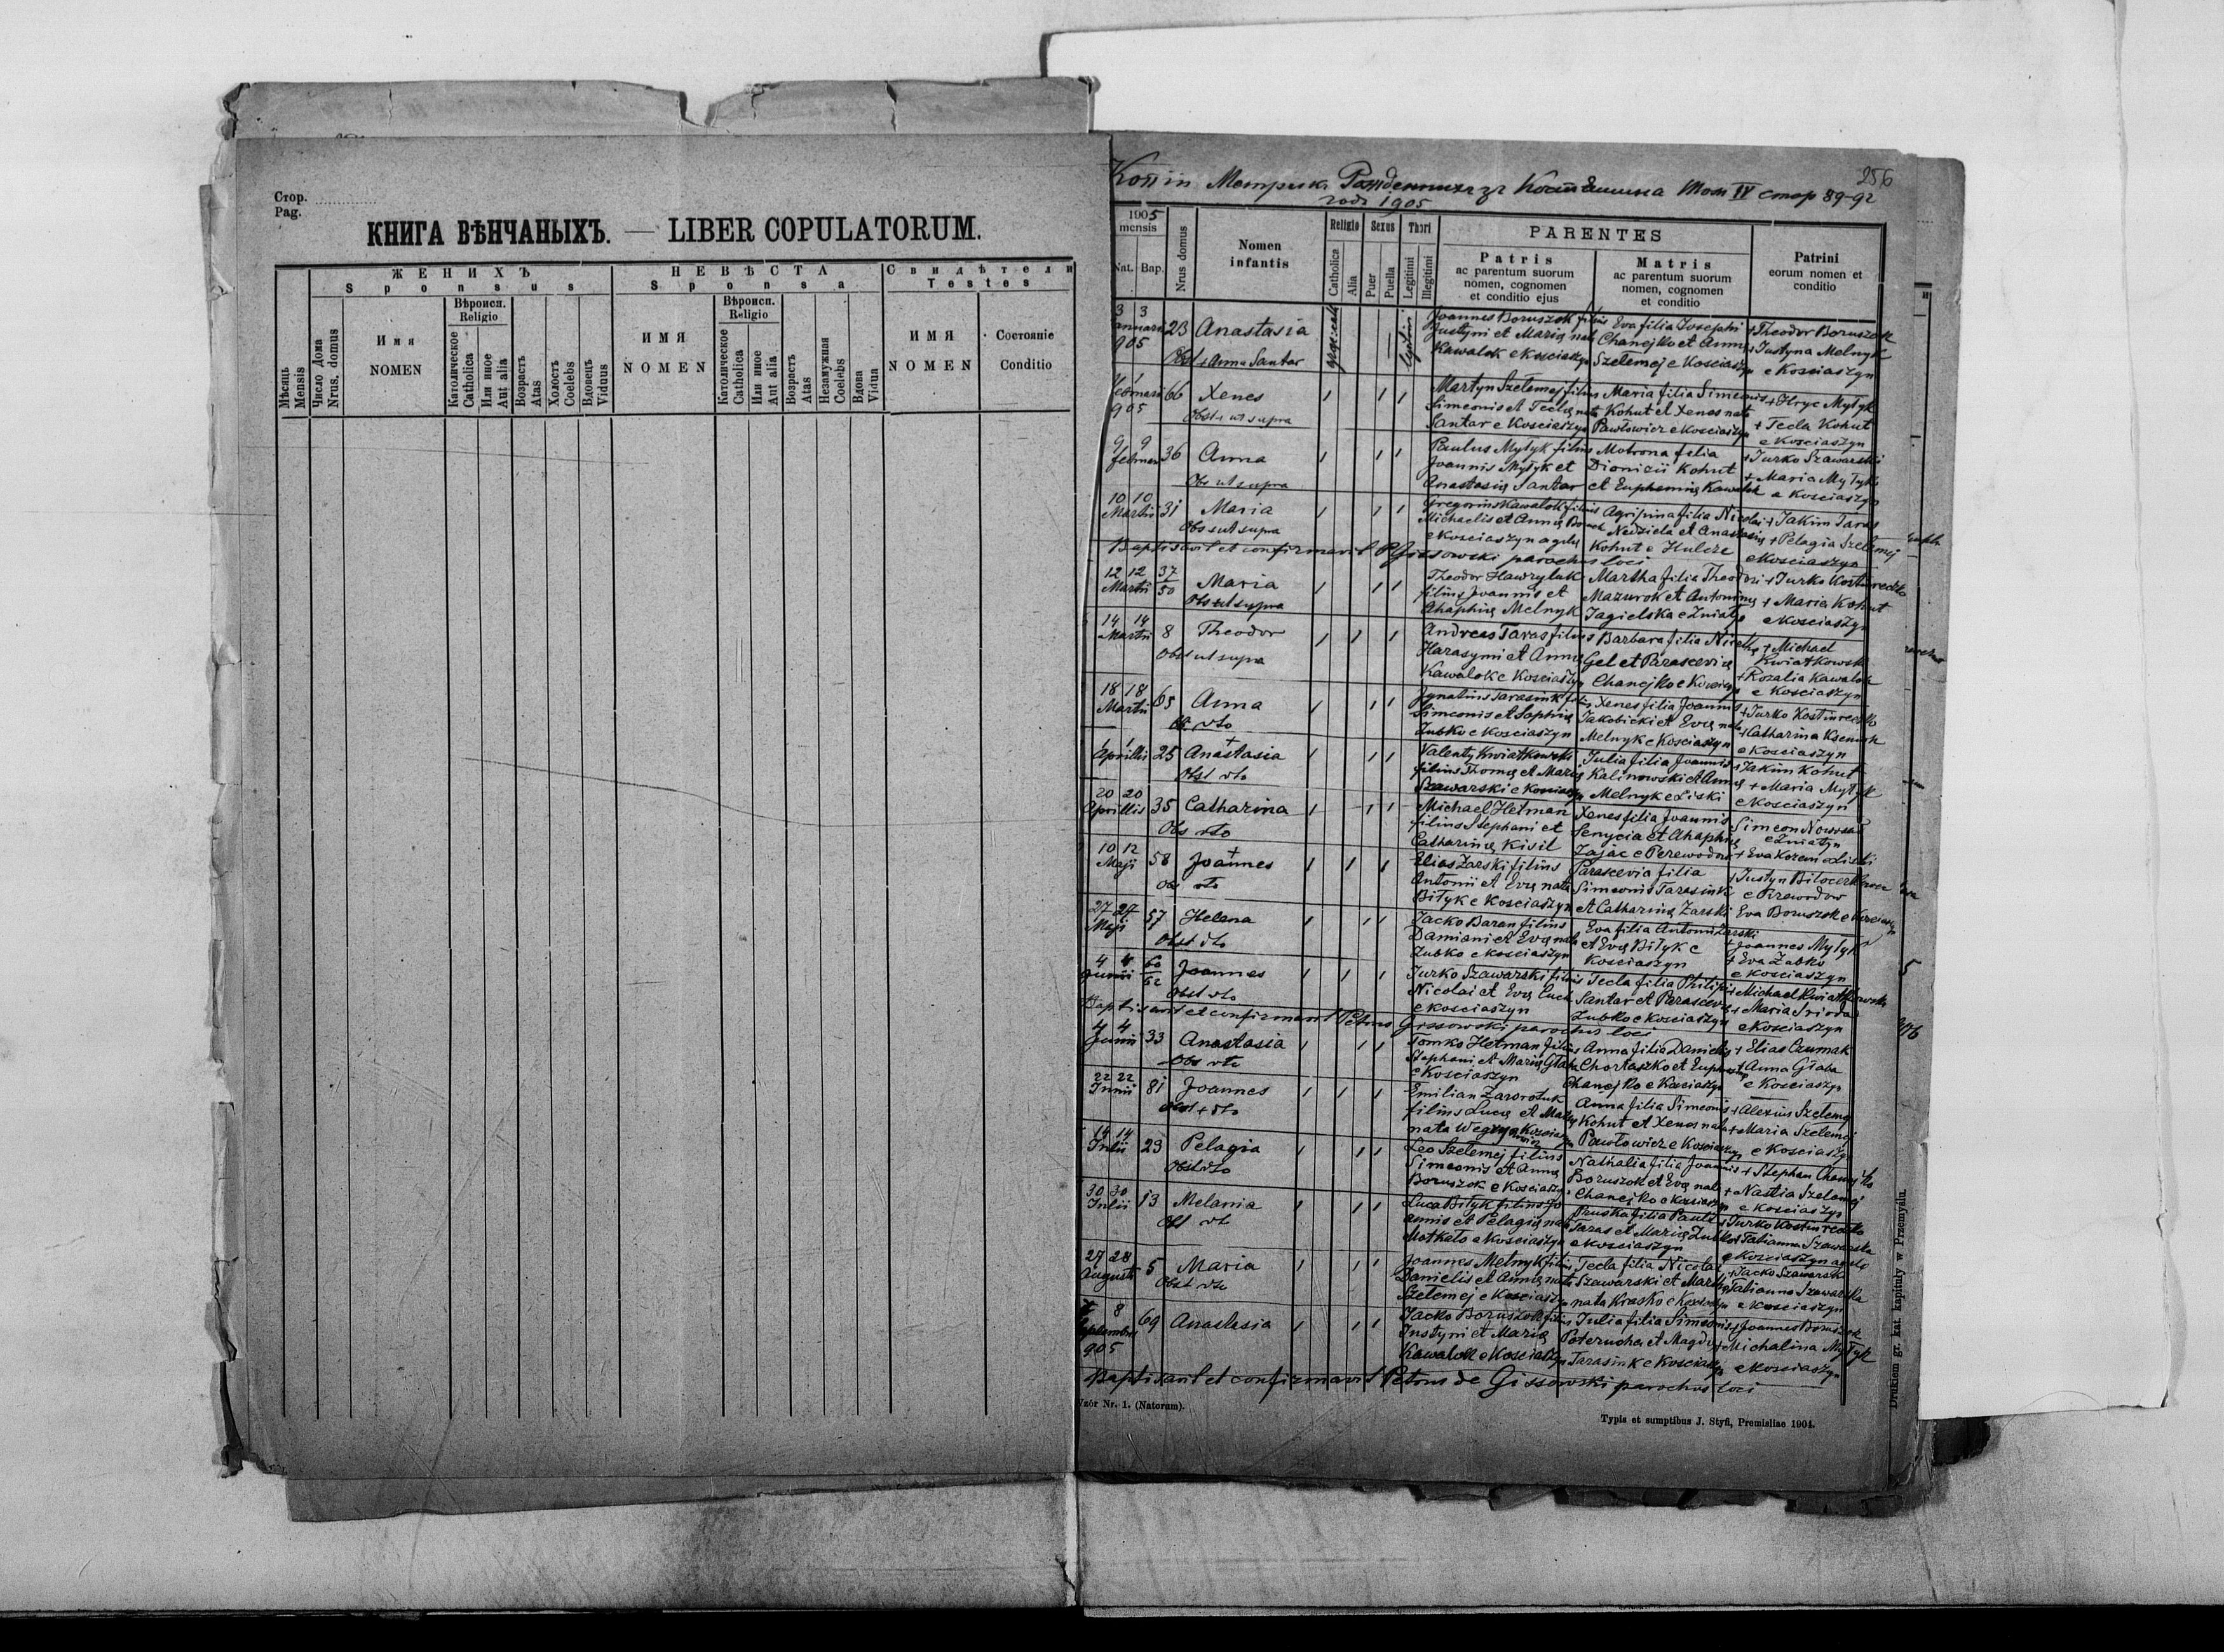 Стор.
Pag.
КНИГА ВѢНЧАНЫХЪ. — LIBER COPULATORUM.
Мѣсяць
Mensis
ЖЕНИХЪ
Sponsus
Число Дома
Nrus. domus
Имя
NOMEN
Вѣроисп.
Religio
Католическое
Catholica
Или иное
Aut alia
Возрастъ
Atas
Холостъ
Coelebs
Вдовецъ
Viduus
НЕВѢСТА
Sponsa
ИМЯ
NOMEN
Вѣроисп.
Religio
Католическое
Catholica
Или иное
Aut alia
Возрастъ
Atas
Незамужная
Coelebs
Вдова
Vidua
Свидѣтели
Testes
ИМЯ
NOMEN
Состояние
Conditio
256
Копіи Метрик Рожденныхъ зъ Том IV стор 89-92
1905
1905
mensis
Nat. Bap.
Nrus domus
Nomen
infantis
Religio
Catholica
Alia
Sexus
Puer
Puella
Thori
Legitimi
Illegitimi
PARENTES
Patris
ac parentum suorum
nomen, cognomen
et conditio ejus
Matris
ac parentum suorum
nomen, cognomen
et conditio
Patrini
eorum nomen et
conditio
3 3
Januarii
905
23
Anastasia
Obst + Anna Santar
Joannes Boruszok filius
Justyni et Marię nata
Kawalok e Kosciaszyn
Eva filia Josephi
Chanejko et Annę
Szelemej e Kosciaszyn
+ Theodor Boruszok
+ Justyna Melnyk
e Kosciaszyn
Februarii
905
66
Xenes
Obst ut supra
Martyn Szelemej filius
Simeonis et Teclę nata
Santar e Kosciaszyn
Maria filia Simeonis
Kohut et Xenes nata
Pawłowicz e Kosciaszyn
+ Hryc Mytyk
+ Tecla Kohut
e Kosciaszyn
9 9
Februar
36
Anna
Obs ut supra
Paulus Mytyk filius
Joannis Mytyk et
Anastasię Santar
Motrona filia
Dionizii Kohut
et Euphemię Kawalok
+ Jurko Szawarski
+ Maria Mytyk
e Kosciaszyn
10 10
Martii
31
Maria
Obs ut supra
Gregorius Kawalok filius
Michaelis et Annę
e Kosciaszyn
Agripina filia Nicolai
Nedziela et Anastasię
Kohut e Hulcze
+ Jakim Taras
+ Pelagia Szelemej
e Kosciaszyn
Baptisavit et confirmavit P Gissowski parochus loci
12 12
Martii
37
50
Maria
Obs ut supra
Theodor Hawryluk
filius Joannis et
Ahaphię Melnyk
Martha filia Theodori
Mazurok et Antoninę
Jagielska e Zniatyn
+ Jurko
+ Maria Kohut
e Kosciaszyn
14 14
Martii
8
Theodor
Obst ut supra
Andreas Taras filius
Harasymi et Annę
Kawalok e Kosciaszyn
Barbara filia
Gel et Parascevię
Chanejko e Kosciaszyn
+ Michael
Kwiatkowski
+ Rozalia Kawalok
e Kosciaszyn
18 18
Martii
65
Anna
Ob. dto
Ignatius Tarasiuk filius
Simeonis et Sophię
Zubko e Kosciaszyn
Xenes filia Joannis
Jakobicki et Evę nata
Melnyk e Kosciaszyn
+ Jurko
+ Catharina
e Kosciaszyn
1 1
Aprillis
25
Anastasia
Obst dto
Valenty Kwiatkowski
filius Thomę et Marię
Szawarski e Kosciaszyn
Julia filia Joannis
Kalinowski et Annę
Melnyk e Liski
+ Jakim Kohut
+ Maria Mytyk
e Kosciaszyn
20 20
Aprillis
35
Catharina
Obs dto
Michael Hetman
filius Stephani et
Catharinę Kisil
Xenes filia Joannis
Senycia et Ahaphię
Zając e Perewodow
Simeon
e Zniatyn
+ Eva e Liski
10 12
Maji
58
Joannes
Obs dto
Elias Zarski filius
Antonii et Evę nata
Biłyk e Kosciaszyn
Parascevia filia
Simeonis Tarasiuk
et Catharinę Zarski
+ Justyn
e Perewodow
Eva Boruszok e Kosciaszyn
27 27
Maji
57
Helena
Obst dto
Jacko Baran filius
Damiani et Evę nata
Zubko e Kosciaszyn
Eva filia Antonii Zarski
et Evę Biłyk e
Kosciaszyn
+ Joannes Mytyk
+ Eva Zubko
e Kosciaszyn
4 4
Junii
60
62
Joannes
Obst dto
Jurko Szawarski filius
Nicolai et Evę
e Kosciaszyn
Tecla filia Philippi
Santar et Parascevię
Zubko e Kosciaszyn
+ Michael Kwiatkowski
+ Maria
e Kosciaszyn
Baptisavit et confirmavit Petrus Gissowski parochus loci
4 4
Junii
33
Anastasia
Obs dto
Tomko Hetman filius
Stephani et Marię Głaba
e Kosciaszyn
Anna filia Danielis
Chortaszko et
Chanejko e Kosciaszyn
+ Elias Czumak
+ Anna Głaba
e Kosciaszyn
22 22
Junii
81
Joannes
Obst + dto
Emilian Zaworotuk
filius Lucę et
nata
Anna filia Simeonis
Kohut et Xenes nata
Pawłowicz e Kosciaszyn
+ Alexius Szelemej
+ Maria Szelemej
e Kosciaszyn
14 14
Julii
23
Pelagia
Obst dto
Leo Szelemej filius
Simeonis et Annę
Boruszok e Kosciaszyn
Nathalia filia Joannis
Boruszok et Evę nata
Chanejko e Kosciaszyn
+ Stephan Chanejko
+ Nastia Szelemej
e Kosciaszyn
30 30
Julii
13
Melania
Obst dto
Luca Biłyk filius Jo
annis et Pelagię nata
Motkalo e Kosciaszyn
Pruska filia Pauli
Taras et Marię Zubko
e Kosciaszyn
+ Jurko
+ Tatianna Szawarska
e Kosciaszyn
27 28
Augusti
5
Maria
Obst dto
Joannes Melnyk filius
Danielis et Annę nata
Szelemej e Kosciaszyn
Tecla filia Nicolai
Szawarski et Marthę
nata Krasko e Kosciaszyn
+ Jacko Szawarski
Tatianna Szawarska
e Kosciaszyn
8
Septembris
905
69
Anastasia
Jacko Boruszok filius
Justyni et Marię
Kawalok e Kosciaszyn
Julia filia Simeonis
Poterucha et Magdę
Tarasiuk e Kosciaszyn
+ Joannes Boruszok
+ Michalina Mytyk
e Kosciaszyn
Baptisavit et confirmavit Petrus de Gissowski parochus loci
Wzór Nr. 1. (Natorum).
Typis et sumptibus J. Styfi, Premisliae 1904.
Drukiem gr. kat. kapituły w Przemyślu.